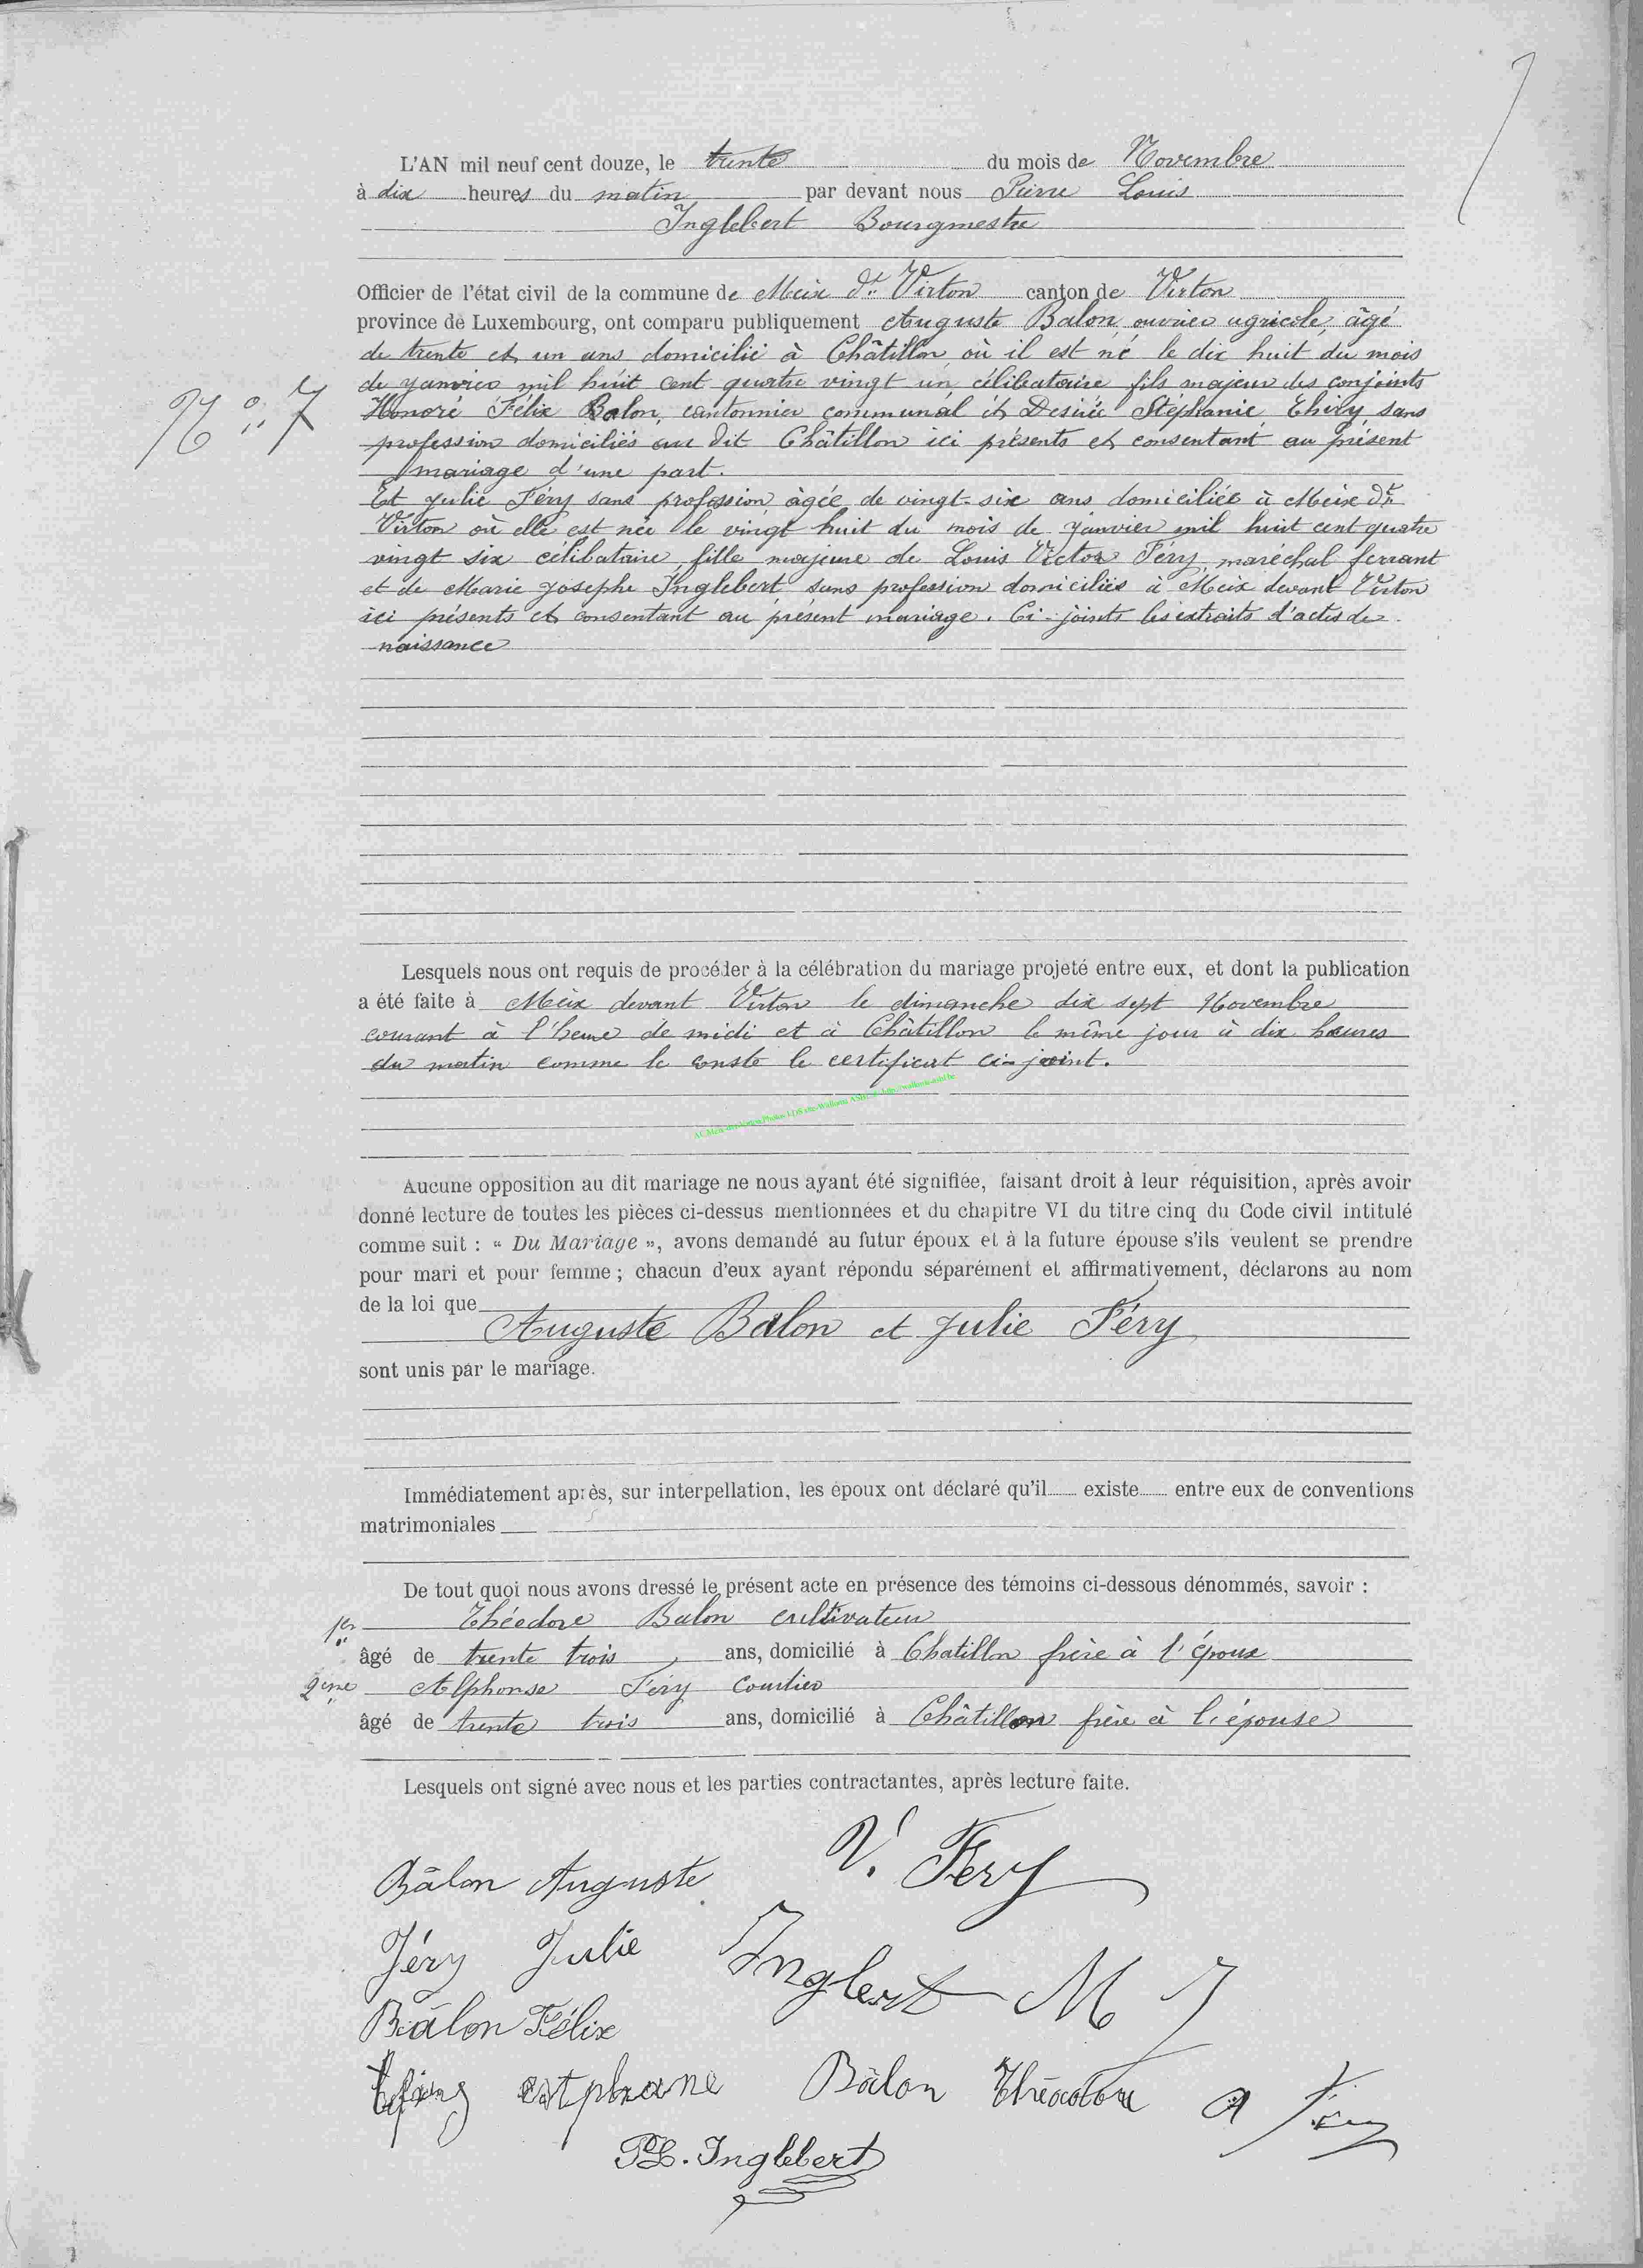 7
L'AN mil neuf cent douze, le trente du mois de Novembre
à dix heures du matin par devant nous Pierre Louis
Inglebert Bourgmestre
Officier de l'état civil de la commune de Meix dt Virton canton de Virton
province de Luxembourg, ont comparu publiquement Auguste Balon, ouvrier agricole, âgé
de trente et un ans domicilié à Châtillon où il est né le dix huit du mois
de janvier mil huit cent quatre vingt un, célibataire fils majeur des conjoints
N° 7
Honoré Félix Balon, cantonnier communal et Desirée Stéphanie Thiry sans
profession domiciliés au dit Châtillon ici présents et consentant au présent
mariage d'une part.
Et Julie Féry sans profession âgée de vingt-six ans domiciliée à Meix dt
Virton où elle est née le vingt huit du mois de janvier mil huit cent quatre
vingt six célibataire, fille majeure de Louis Victor Féry, maréchal ferrant
et de Marie Josephe Inglebert sans profession domiciliés à Meix devant Virton
ici présents et consentant au présent mariage. Ci-joints les extraits d'actes de
naissance
Lesquels nous ont requis de procéder à la célébration du mariage projeté entre eux, et dont la publication
a été faite à Meix devant Virton le dimanche dix sept Novembre
courant à l'heure de midi et à Châtillon le même jour à dix heures
du matin comme le conste le certificat ci-joint.
Aucune opposition au dit mariage ne nous ayant été signifiée, faisant droit à leur réquisition, après avoir
donné lecture de toutes les pièces ci-dessus mentionnées et du chapitre VI du titre cinq du Code civil intitulé
comme suit : « Du Mariage », avons demandé au futur époux et à la future épouse s'ils veulent se prendre
pour mari et pour femme ; chacun d'eux ayant répondu séparément et affirmativement, déclarons au nom
de la loi que
Auguste Balon et Julie Féry
sont unis par le mariage.
Immédiatement après, sur interpellation, les époux ont déclaré qu'il existe entre eux de conventions
matrimoniales
De tout quoi nous avons dressé le présent acte en présence des témoins ci-dessous dénommés, savoir :
1er Théodore Balon cultivateur
âgé de trente trois ans, domicilié à Chatillon frère à l'époux
2ème Alphonse Féry Courtier
âgé de trente trois ans, domicilié à Châtillon frère à l'épouse
Lesquels ont signé avec nous et les parties contractantes, après lecture faite.
V. Fery
Bâlon Auguste
Féry Julie Inglert M J
Bâlon Félix
estphane Bâlon Théodore A Féry
PL. Inglebert